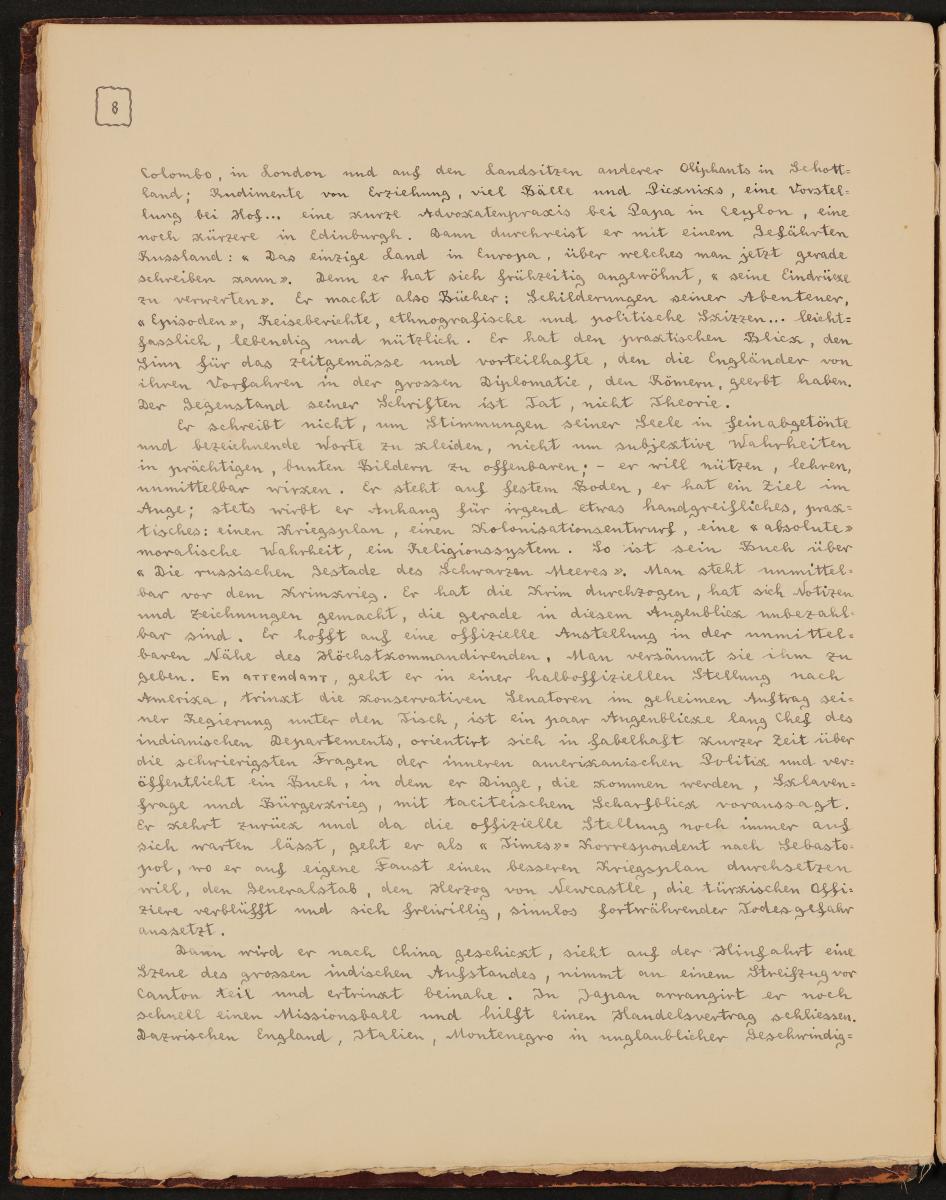 8
Colombo, in London und auf den Landsitzen anderer Oliphants in Schott=
land; Rudimente von Erziehung, viel Bälle und Picknicks, eine Vorstel=
lung bei Hof... eine kurze Advokatenpraxis bei Papa in Ceylon, eine
noch kürzere in Edinburgh. Dann durchreist er mit einem Gefährten
Russland: « Das einzige Land in Europa, über welches man jetzt gerade
schreiben kann ». Denn er hat sich frühzeitig angewöhnt, « seine Eindrücke
zu verwerten ». Er macht also Bücher: Schilderungen seiner Abenteuer,
« Episoden », Reiseberichte, ethnografische und politische Skizzen... leicht=
fasslich, lebendig und nützlich. Er hat den praktischen Blick, den
Sinn für das Zeitgemässe und vorteilhafte, den die Engländer von
ihren Vorfahren in der grossen Diplomatie, den Römern, geerbt haben.
Der Gegenstand seiner Schriften ist Tat, nicht Theorie.
Er schreibt nicht, um Stimmungen seiner Seele in feinabgetönte
und bezeichnende Worte zu kleiden, nicht um subjektive Wahrheiten
in prächtigen, bunten Bildern zu offenbaren; – er will nützen, lehren,
unmittelbar wirken. Er steht auf festem Boden, er hat ein Ziel im
Auge; stets wirbt er Anhang für irgend etwas handgreifliches, prak=
tisches: einen Kriegsplan, einen Kolonisationsentwurf, eine « absolute »
moralische Wahrheit, ein Religionssystem. So ist sein Buch über
« Die russischen Gestade des Schwarzen Meeres ». Man steht unmittel=
bar vor dem Krimkrieg. Er hat die Krim durchzogen, hat sich Notizen
und Zeichnungen gemacht, die gerade in diesem Augenblick unbezahl=
bar sind. Er hofft auf eine offizielle Anstellung in der unmittel=
baren Nähe des Höchstkommandirenden. Man versäumt sie ihm zu
geben. En attendant, geht er in einer halboffiziellen Stellung nach
Amerika, trinkt die konservativen Senatoren im geheimen Auftrag sei=
ner Regierung unter den Tisch, ist ein paar Augenblicke lang Chef des
indianischen Departements, orientirt sich in fabelhaft kurzer Zeit über
die schwierigsten Fragen der inneren amerikanischen Politik und ver=
öffentlicht ein Buch, in dem er Dinge, die kommen werden, Sklaven=
frage und Bürgerkrieg, mit taciteischem Scharfblick voraussagt.
Er kehrt zurück und da die offizielle Stellung noch immer auf
sich warten lässt, geht er als « Times »= Korrespondent nach Sebasto=
pol, wo er auf eigene Faust einen besseren Kriegsplan durchsetzen
will, den Generalstab, den Herzog von Newcastle, die türkischen Offi=
ziere verblüfft und sich freiwillig, sinnlos fortwährender Todesgefahr
aussetzt.
Dann wird er nach China geschickt, sieht auf der Hinfahrt eine
Szene des grossen indischen Aufstandes, nimmt an einem Streifzug vor
Canton teil und ertrinkt beinahe. In Japan arrangirt er noch
schnell einen Missionsball und hilft einen Handelsvertrag schliessen.
Dazwischen England, Italien, Montenegro in unglaublicher Geschwindig=